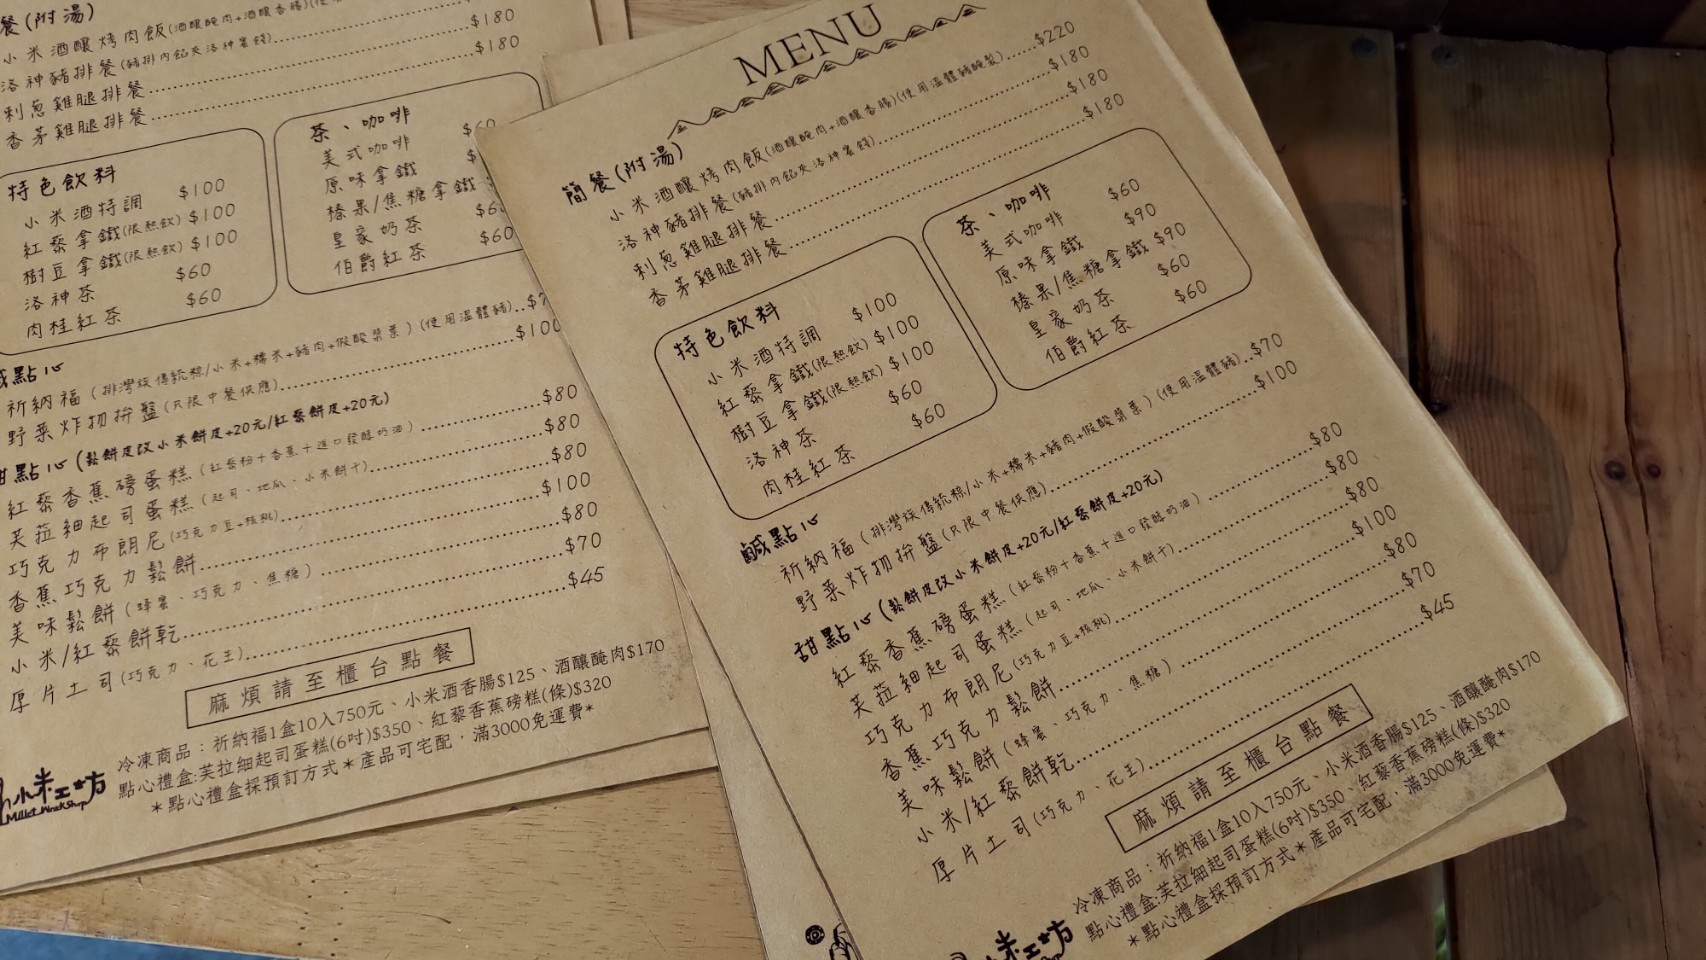 餐(附湯)
小米酒釀烤肉飯(酒釀醃肉+酒釀香腸)
洛神豬排餐(豬排內餡夾洛神蜜餞)
$180
刺蔥雞腿排餐
$180
香茅雞腿排餐
特色飲料
小米酒特調 $100
紅藜拿鐵(限熱飲) $100
樹豆拿鐵(限熱飲) $100
洛神茶 $60
肉桂紅茶 $60
茶、咖啡
美式咖啡
原味拿鐵
榛果/焦糖拿鐵
皇家奶茶
伯爵紅茶 $60
鹹點心
祈納福(排灣族傳統粽/小米+糯米+豬肉+假酸漿葉)(使用溫體豬)
野菜炸物拚盤(只限中餐供應) $100
甜點心(鬆餅皮改小米餅皮+20元/紅藜餅皮+20元)
紅藜香蕉磅蛋糕(紅藜粉+香蕉+進口發酵奶油) $80
芙菈細起司蛋糕(起司、地瓜、小米餅干) $80
巧克力布朗尼(巧克力豆+核桃) $80
香蕉巧克力鬆餅 $100
美味鬆餅(蜂蜜、巧克力、焦糖) $80
小米/紅藜餅乾 $70
厚片土司(巧克力、花生) $45
麻煩請至櫃台點餐
冷凍商品:祈納福1盒10入750元、小米酒香腸$125、酒釀醃肉$170
點心禮盒:芙拉細起司蛋糕(6吋)$350、紅藜香蕉磅糕(條)$320
*點心禮盒採預訂方式*產品可宅配,滿3000免運費*
小米工坊
Millet WorkShop
MENU
簡餐(附湯)
小米酒釀烤肉飯(酒釀醃肉+酒釀香腸)(使用溫體豬醃製) $220
洛神豬排餐(豬排內餡夾洛神蜜餞) $180
刺蔥雞腿排餐 $180
香茅雞腿排餐 $180
特色飲料
小米酒特調 $100
紅藜拿鐵(限熱飲) $100
樹豆拿鐵(限熱飲) $100
洛神茶 $60
肉桂紅茶 $60
茶、咖啡
美式咖啡 $60
原味拿鐵 $90
榛果/焦糖拿鐵 $90
皇家奶茶 $60
伯爵紅茶 $60
鹹點心
祈納福(排灣族傳統粽/小米+糯米+豬肉+假酸漿葉)(使用溫體豬) $70
野菜炸物拚盤(只限中餐供應) $100
甜點心(鬆餅皮改小米餅皮+20元/紅藜餅皮+20元)
紅藜香蕉磅蛋糕(紅藜粉+香蕉+進口發酵奶油) $80
芙菈細起司蛋糕(起司、地瓜、小米餅干) $80
巧克力布朗尼(巧克力豆+核桃) $80
香蕉巧克力鬆餅 $100
美味鬆餅(蜂蜜、巧克力、焦糖) $80
小米/紅藜餅乾 $70
厚片土司(巧克力、花生) $45
麻煩請至櫃台點餐
冷凍商品:祈納福1盒10入750元、小米酒香腸$125、酒釀醃肉$170
點心禮盒:芙拉細起司蛋糕(6吋)$350、紅藜香蕉磅糕(條)$320
*點心禮盒採預訂方式*產品可宅配,滿3000免運費*
小米工坊